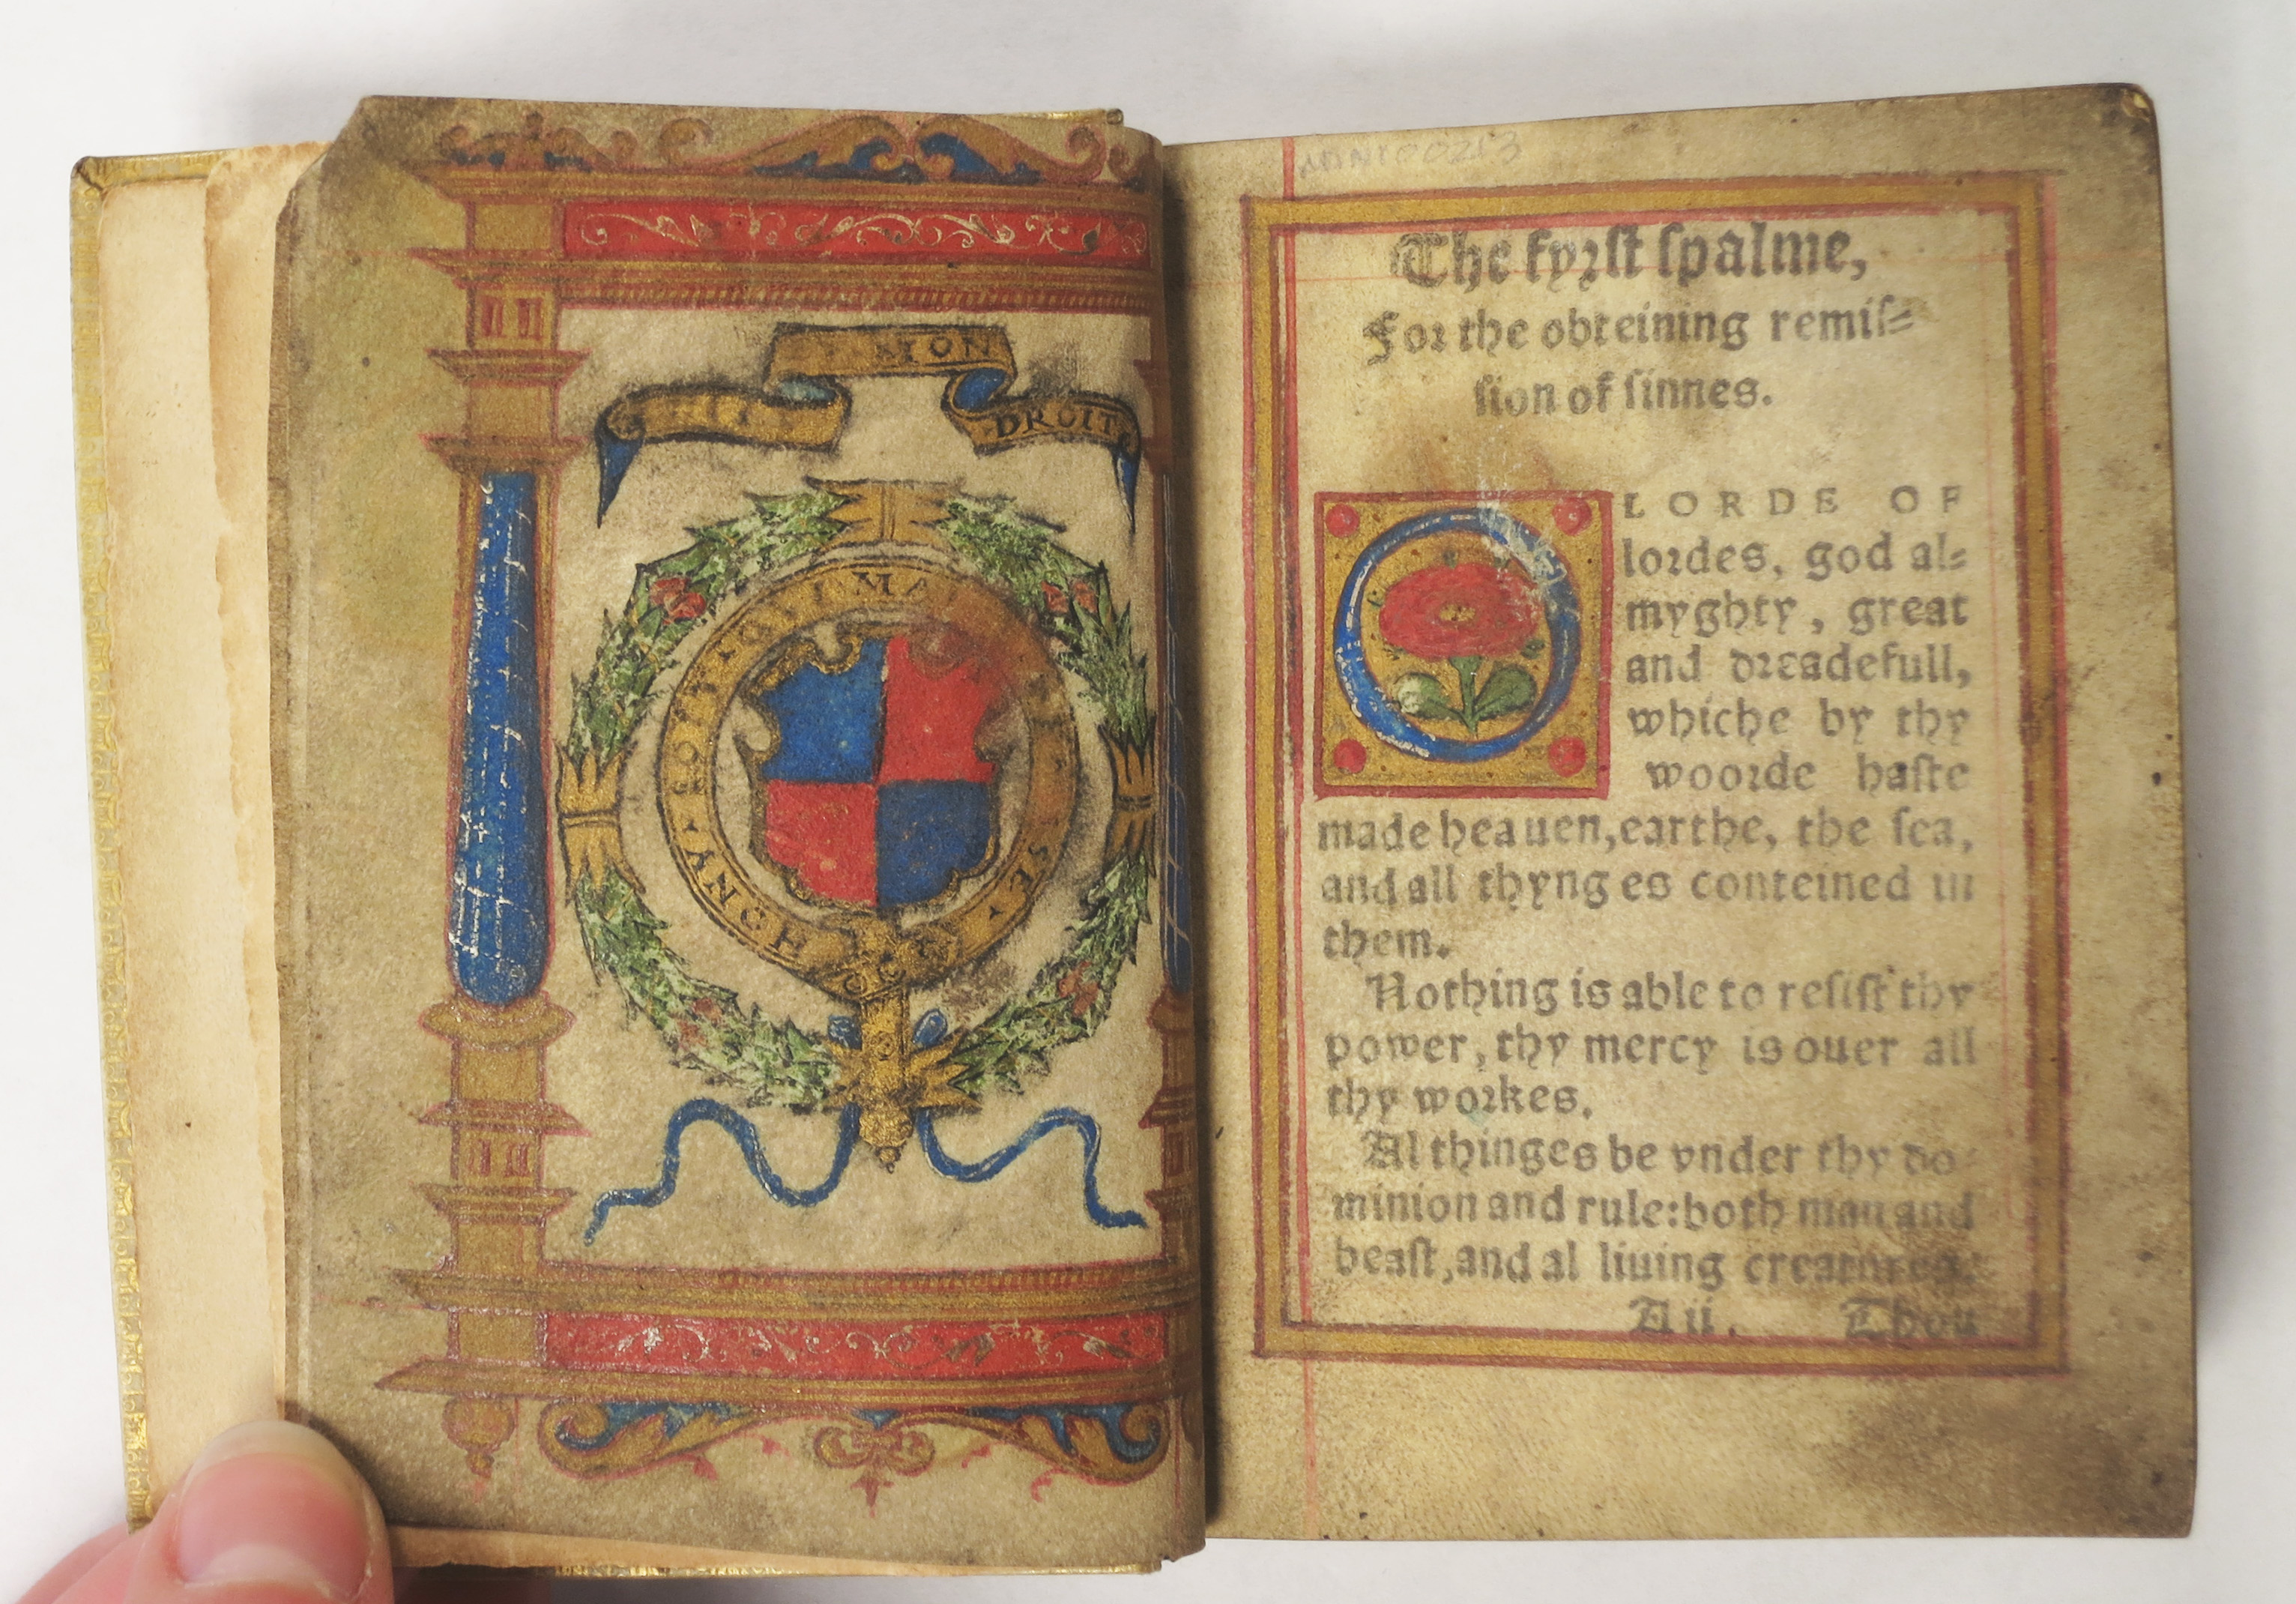 MON
DROIT
HONY · SOIT · QVI · MA
SE
The fyrst spalme,
For the obteining remis=
sion of sinnes.
O LORDE OF
lordes, god al=
myghty, great
and dreadefull,
whiche by thy
woorde haste
made heauen, earthe, the sea,
and all thynges conteined in
them.
Nothing is able to resist thy
power, thy mercy is ouer all
thy workes.
Al thinges be vnder thy do
minion and rule: both man and
beast, and al liuing creatures.
A ii. Thou